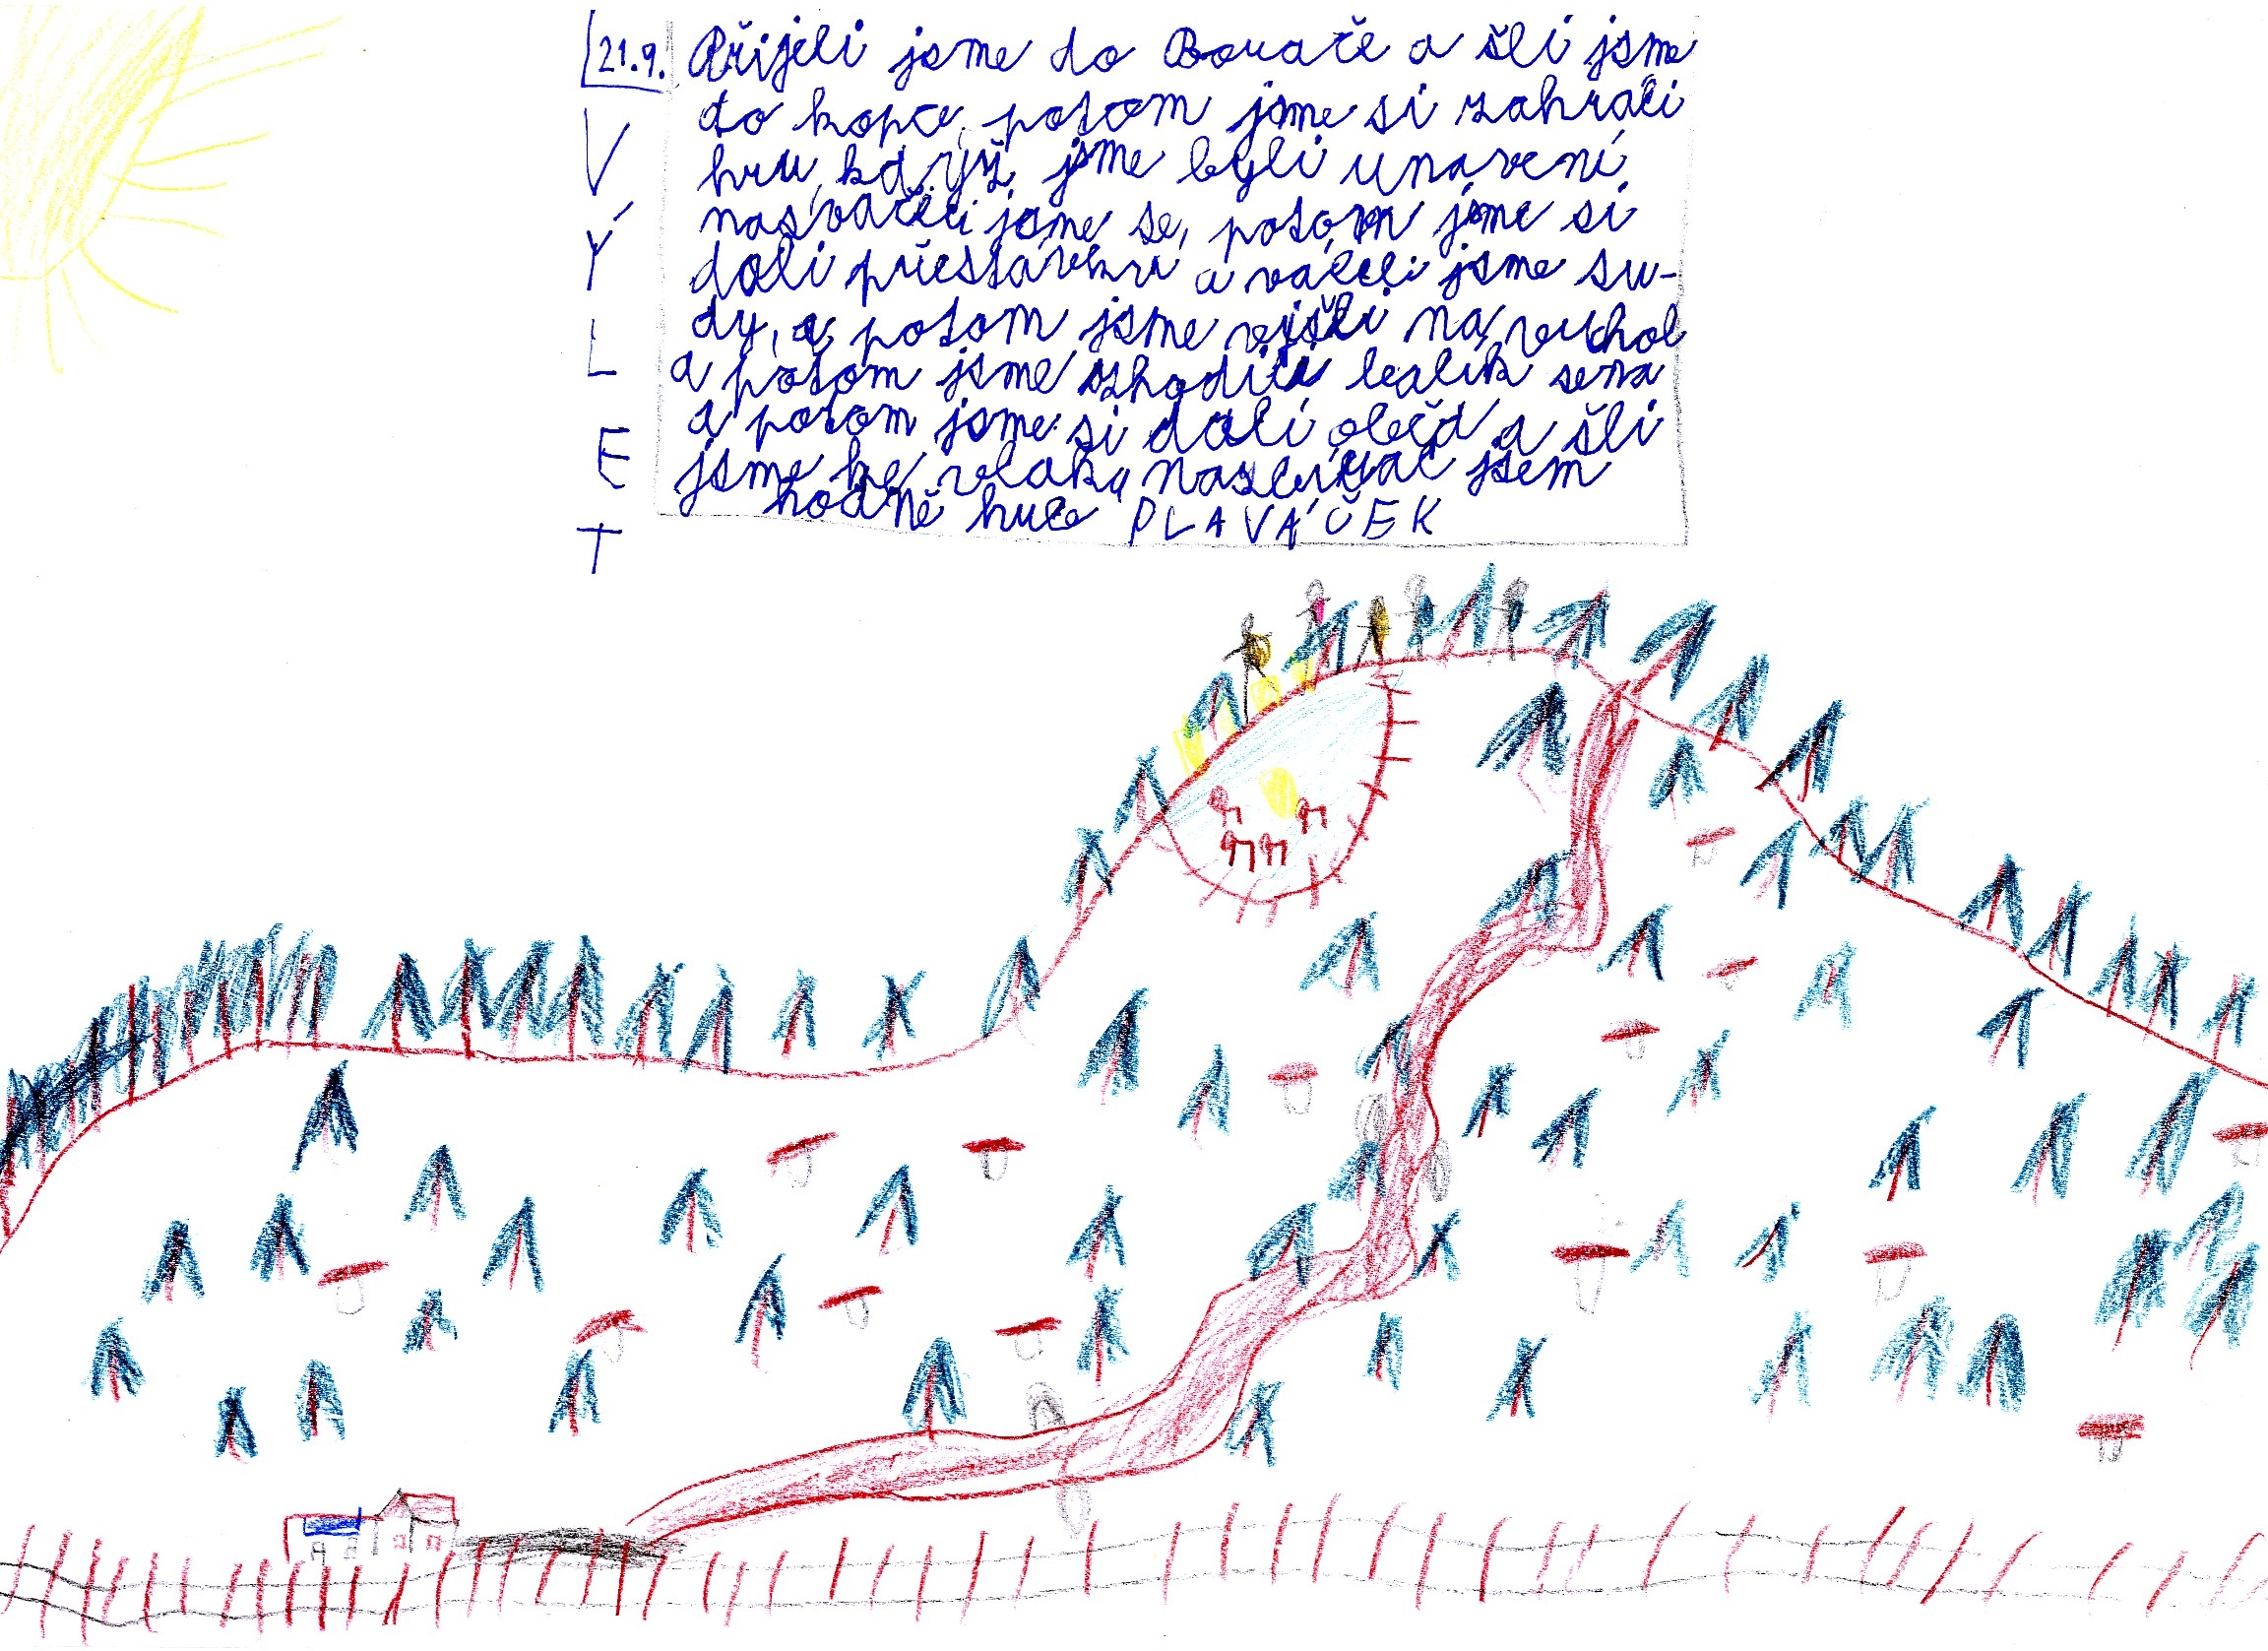 21.9.
VÝLET
Přijeli jsme do a šli jsme
do kopce, potom jsme si zahráli
hru, když jsme byli unavení
nasváčili jsme se, potom jsme si
dali přestávku a váleli jsme su-
dy, a potom jsme vyšli na vrchol
a potom jsme shodili balík sena
a potom jsme si dali oběd a šli
jsme ke vlaku, jsem
hodně hub PLAVÁČEK